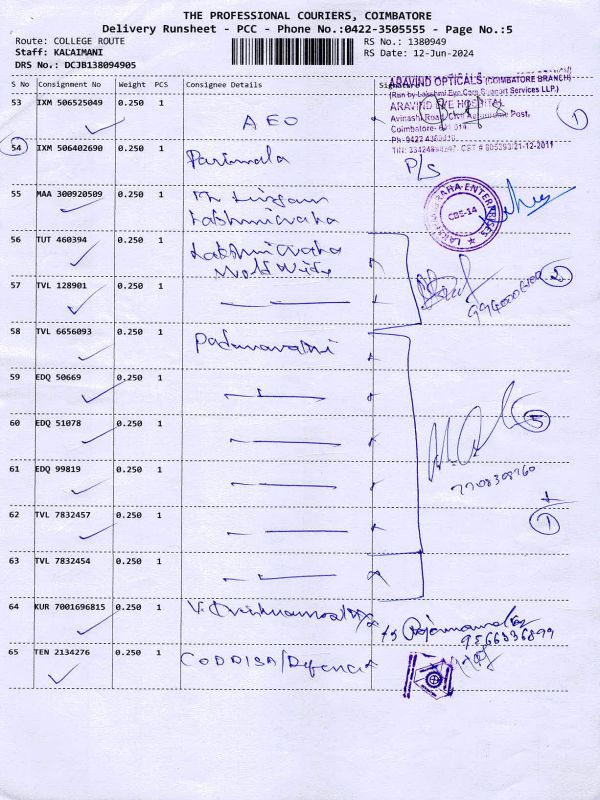 THE PROFESSIONAL COURIERS, COIMBATORE
Delivery Runsheet - PCC - Phone No.:0422-3505555 - Page No.:5
Route: COLLEGE ROUTE
RS No.: 1380949
Staff: KALAIMANI
RS Date: 12-Jun-2024
DRS No.: DCJB138094905
S No Consignment No Weight PCS Consignee Details
53 IXM 506525049 0.250 1 AEO
ARAVIND OPTICALS (COIMBATORE BRANCH)
(Run by Lakshmi Eye Care Support Services LLP.)
ARAVIND EYE HOSPITAL
Avinashi Road, Civil Aerodrome Post,
Coimbatore- 641 014
1
54 IXM 506402690 0.250 1 Parimala P/S
55 MAA 300920509 0.250 1
CBE-14
ENTERPRISES
56 TUT 460394 0.250 1
World Wide
57 TVL 128901 0.250 1
2
58 TVL 6656093 0.250 1 Padmavathi
59 EDQ 50669 0.250 1
60 EDQ 51078 0.250 1
5
61 EDQ 99819 0.250 1
7708308760
62 TVL 7832457 0.250 1
1
63 TVL 7832454 0.250 1
64 KUR 7001696815 0.250 1
9566836899
65 TEN 2134276 0.250 1 CODDISA/Defence